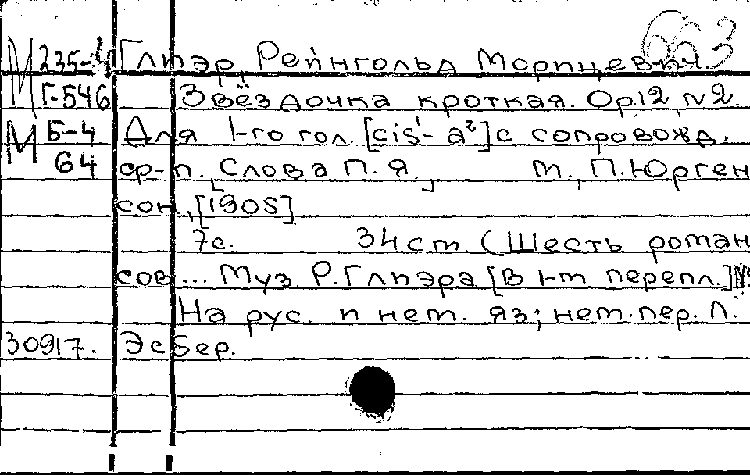 663
М 235-4 Глиэр, Рейнгольд Морицевич.
Г-546 Звёздочка кроткая. Op.12, N2.
М Б-4 Для 1-го гол. [cis¹- a²] с сопровожд.
64 ф-п. Слова П. Я. М., П. Юрген
сон, [1905]
7с. 34 см. (Шесть роман
сов... Муз Р. Глиэра [в 1-м перепл.]
На рус. и нем. яз; нем. пер. Л.
30917. Эсбер.